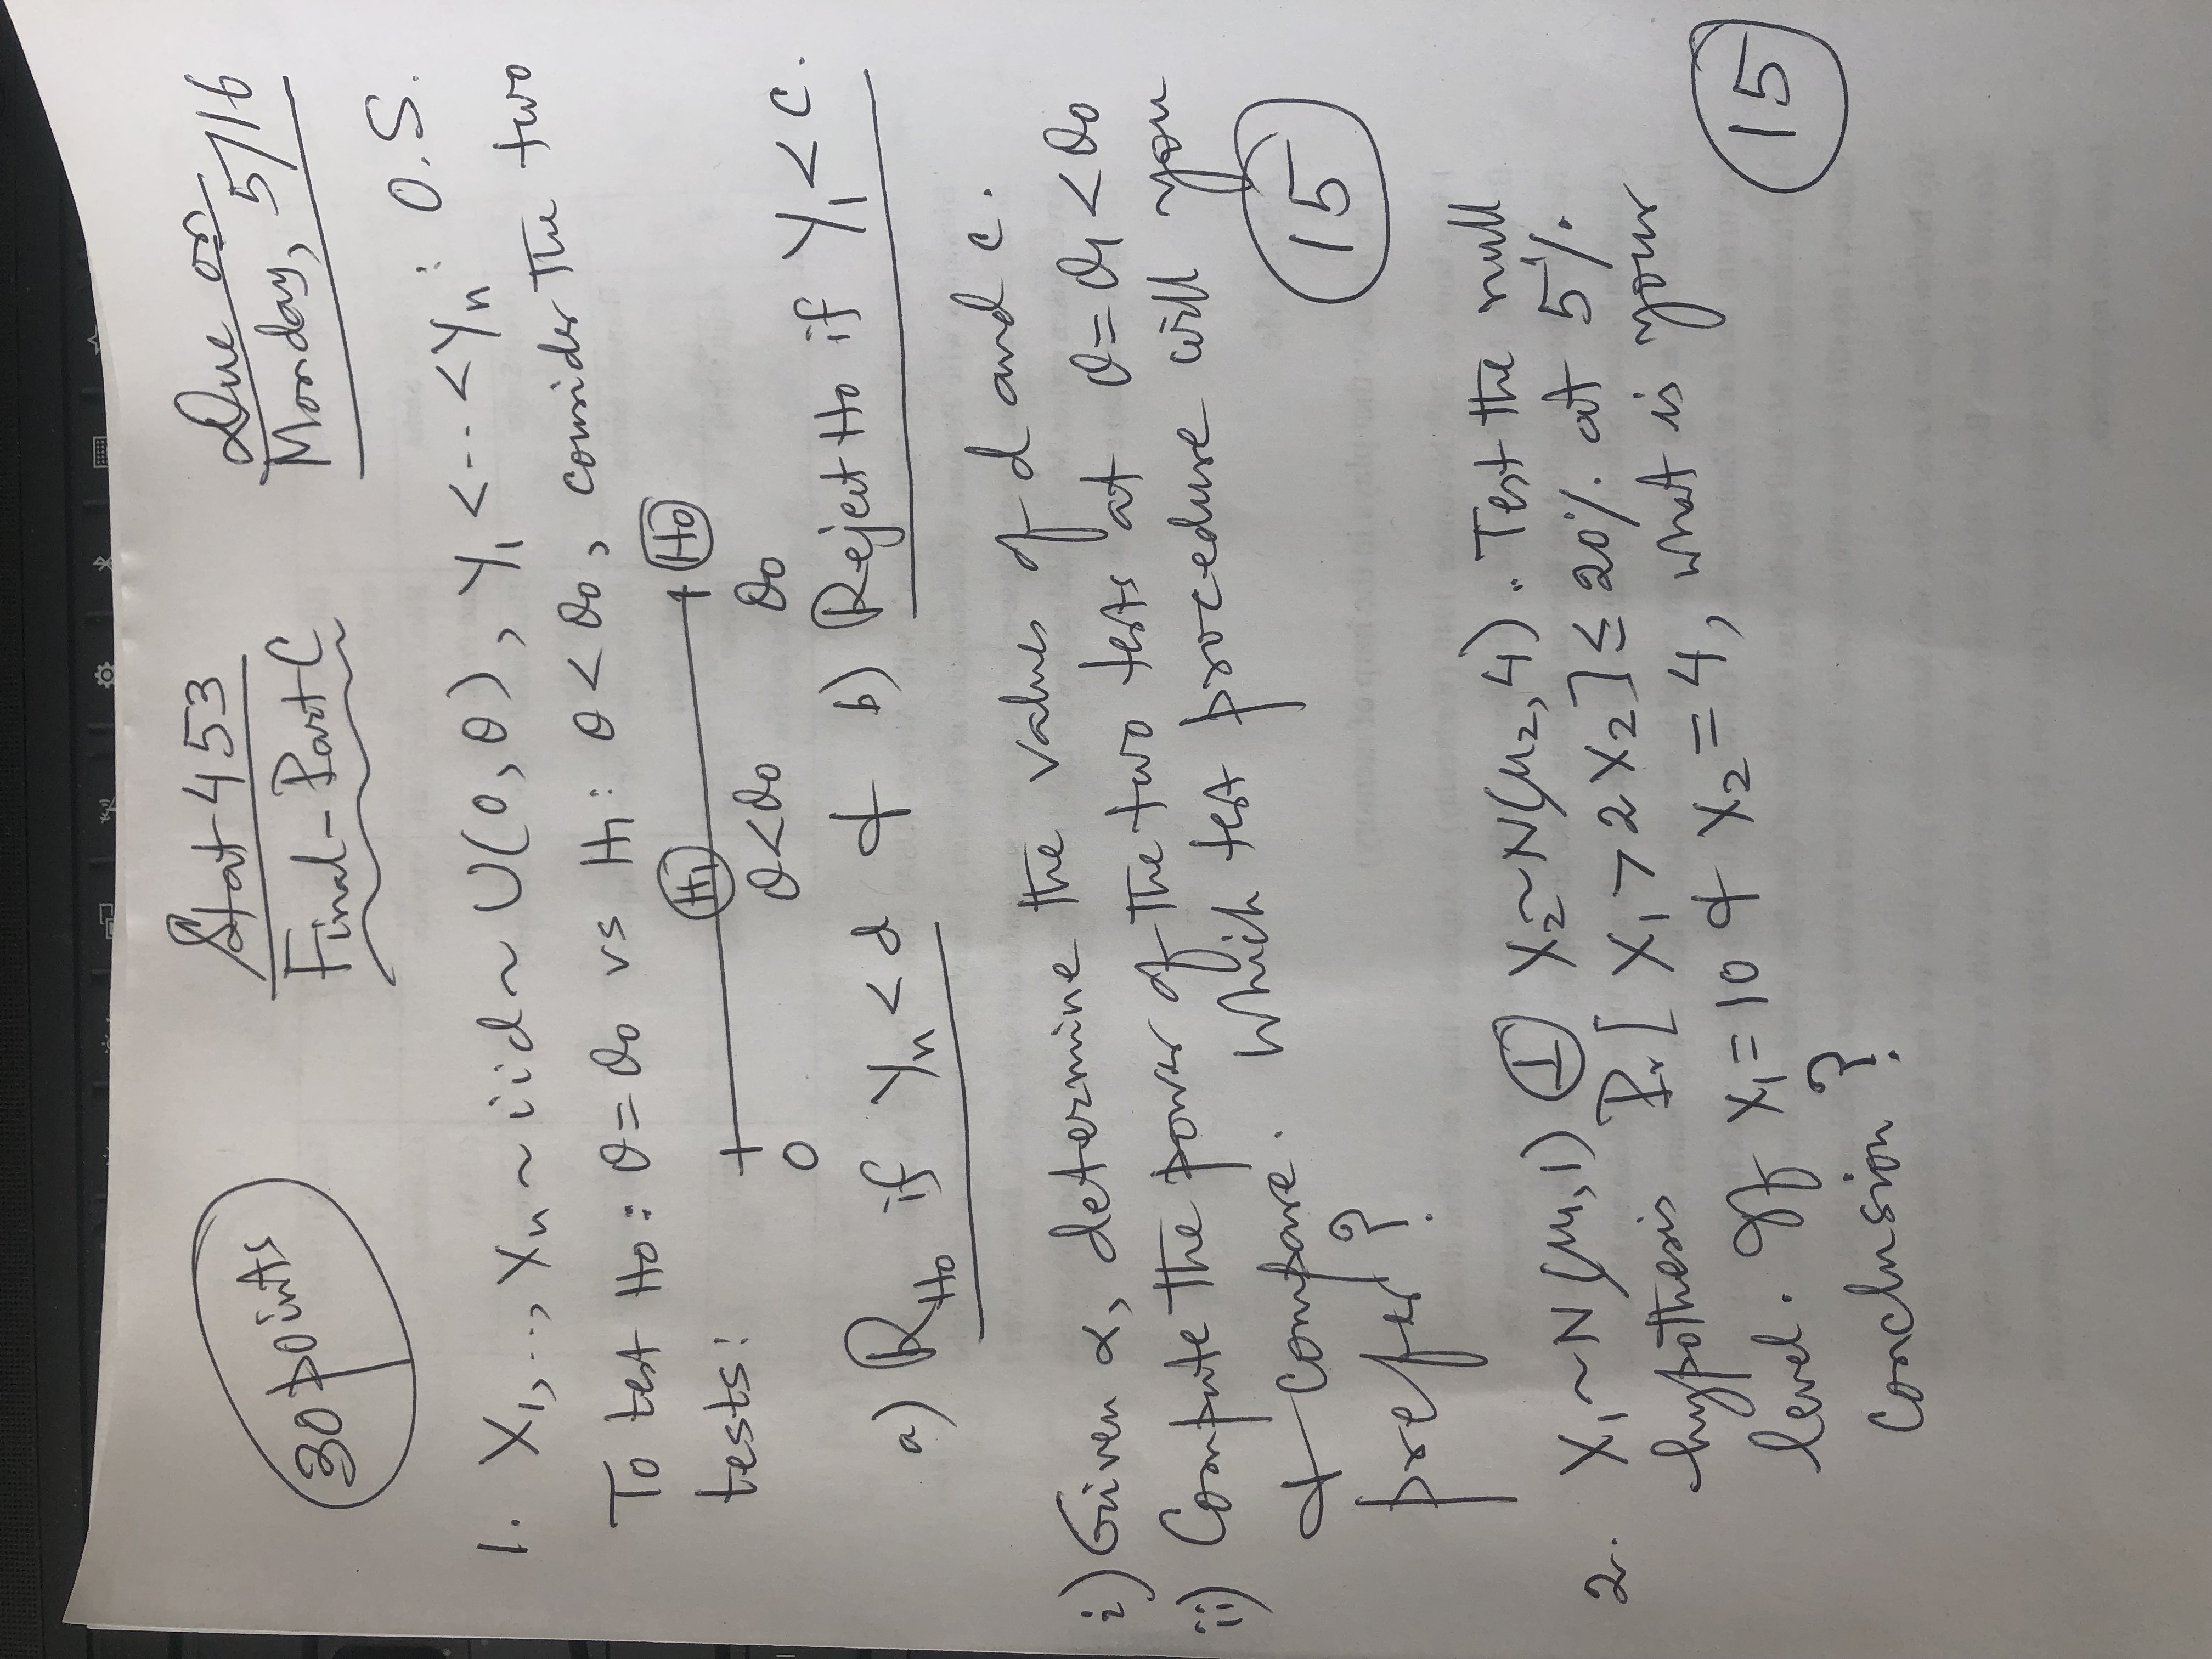 30 points
Stat 453
Final - Part C
Due on
Monday, 5/16
1. X1, ..., Xn ~ iid ~ U(0, θ), Y1 < --- < Yn : O.S.
To test H0: θ = θ0 vs H1: θ < θ0, consider the two
tests:
H1 H0
0 θ<θ0 θ0
a) RH0 if Yn < d & b) Reject H0 if Y1 < c.
i) Given α, determine the values of d and c.
ii) Compute the power of the two tests at θ = θ1 < θ0
& compare. Which test procedure will you
prefer?
15
2. X1 ~ N(μ1, 1) ⊥ X2 ~ N(μ2, 4). Test the null
hypothesis Pr[X1 > 2X2] ≤ 20% at 5%
level. If X1 = 10 & X2 = 4, what is your
conclusion?
15